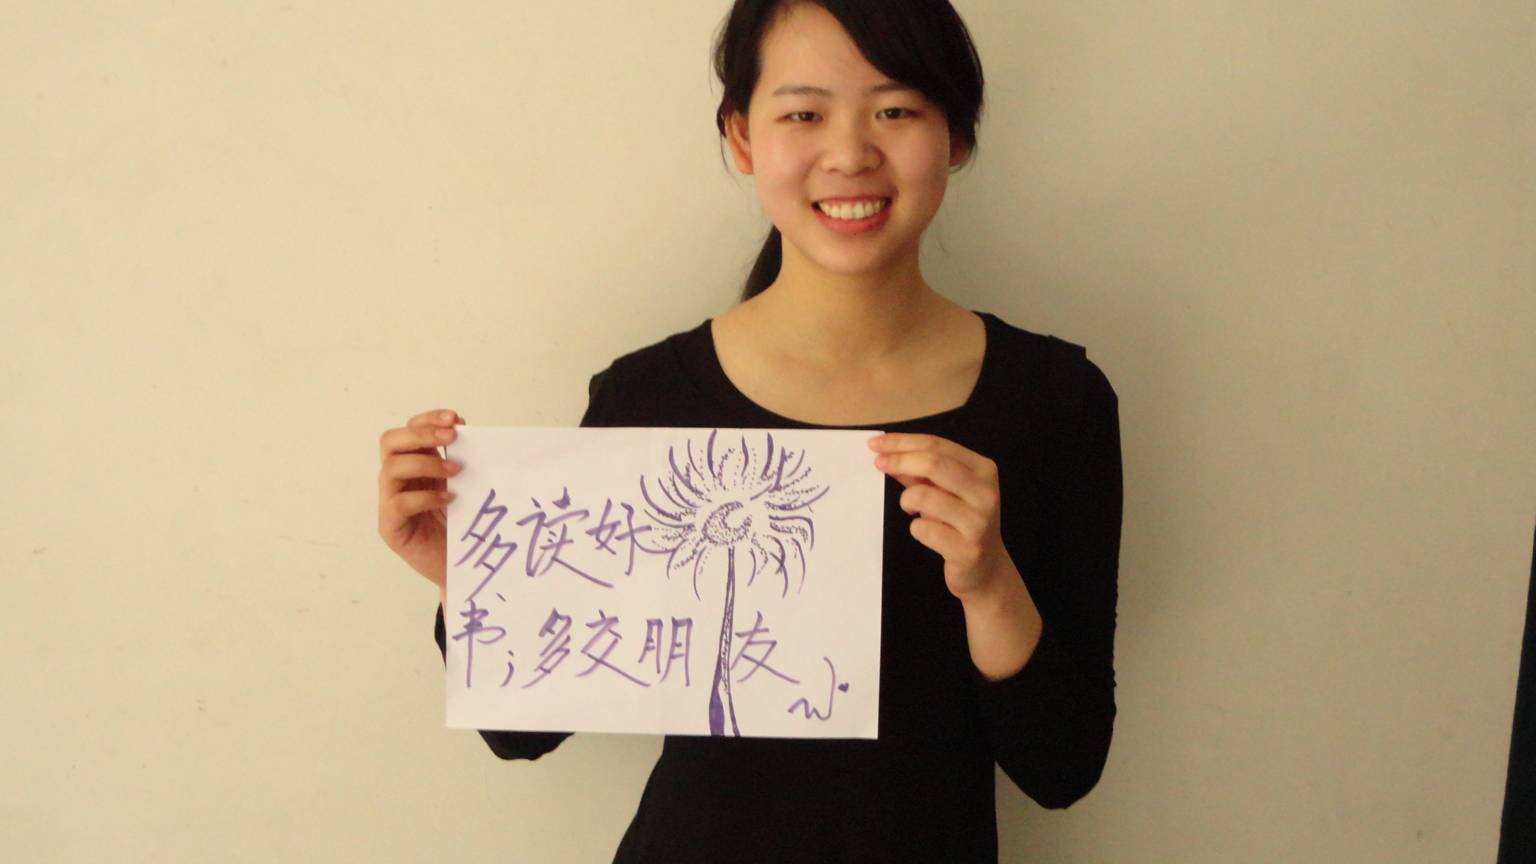 多读好
书;多交朋友